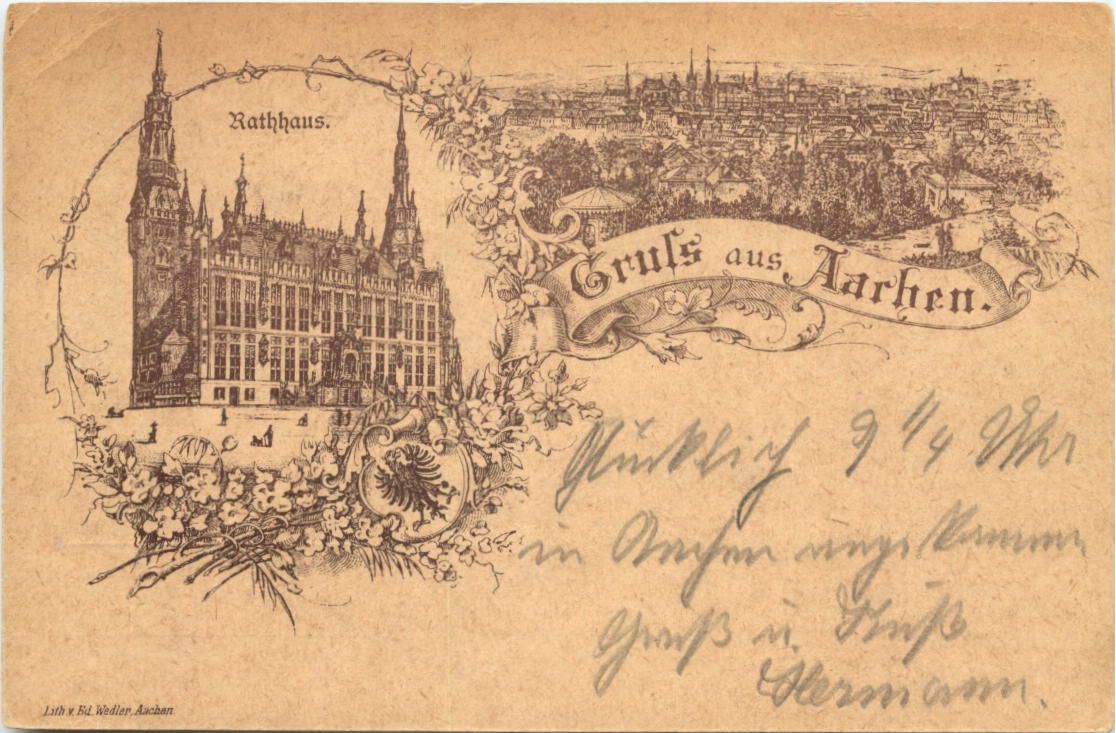 Rathhaus.
Gruss aus Aachen.
Glücklich 9 1/4 Uhr
in Aachen angekommen
Gruß u. Kuß
Hermann.
Lith. v. Ed. Wedler, Aachen.